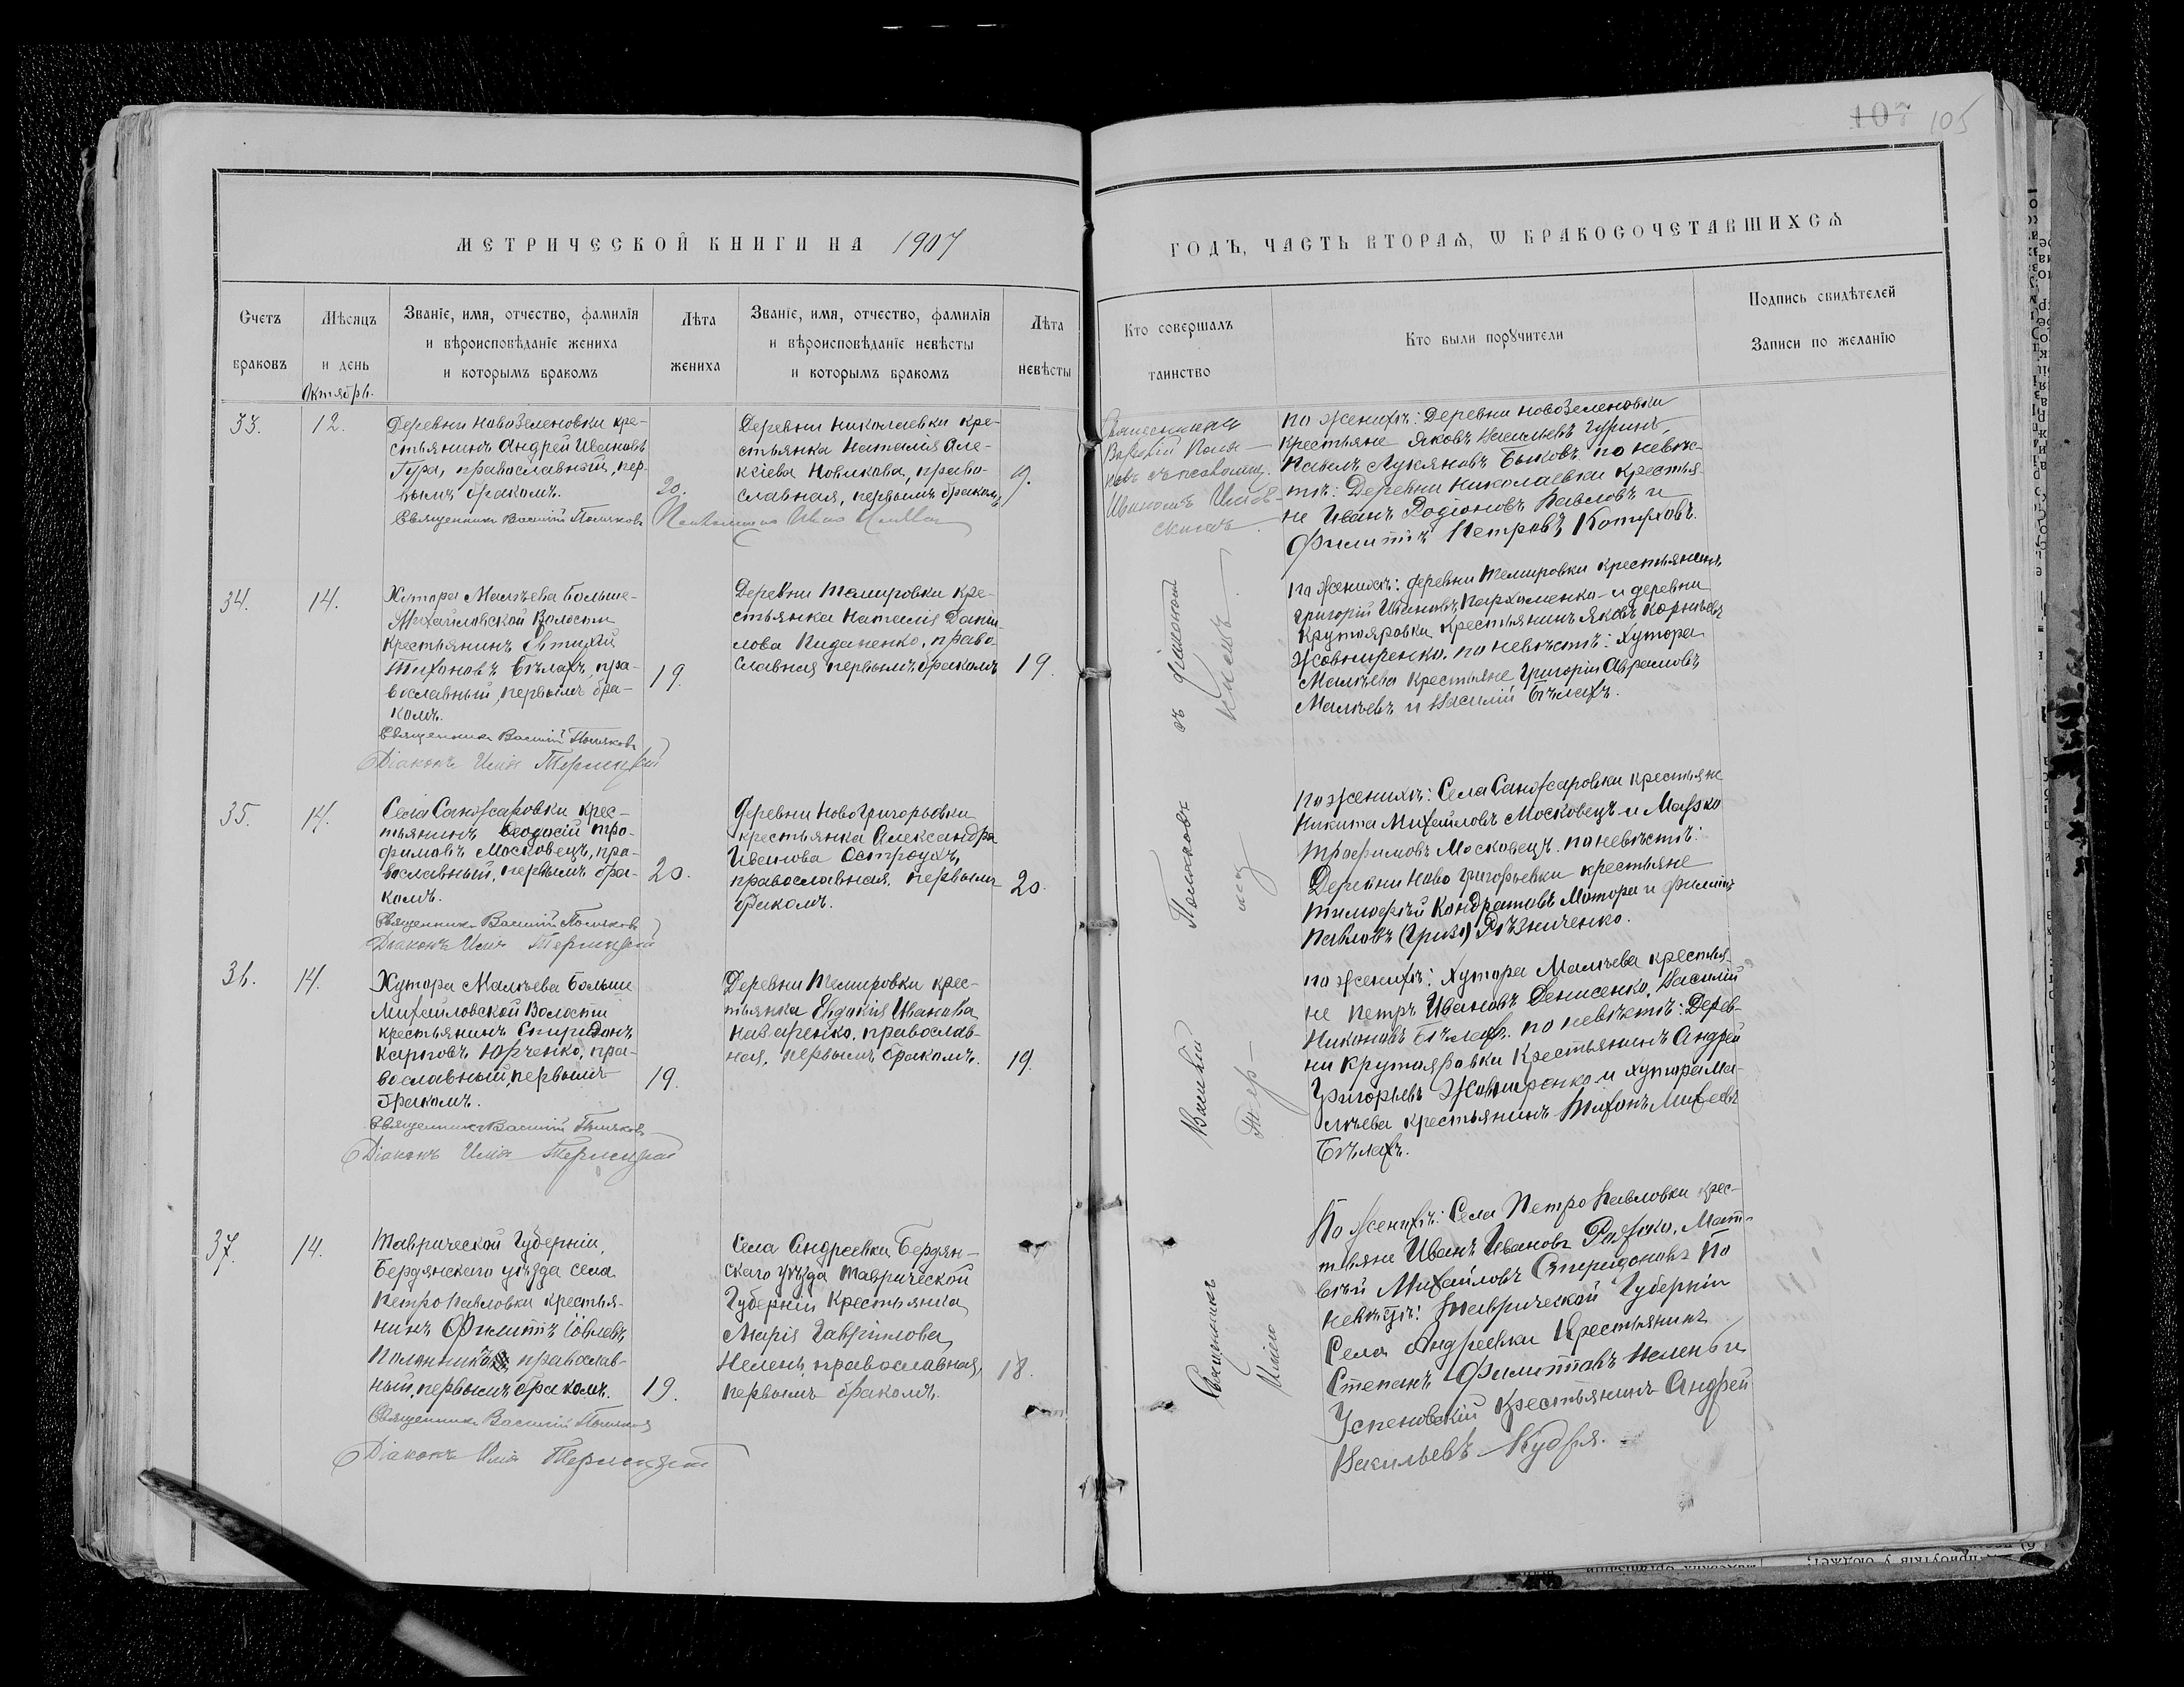 107 105
МЕТРИЧЕСКОЙ КНИГИ НА 1907
ГОДЪ, ЧАСТЬ ВТОРАѦ, Ѡ БРАКОСОЧЕТАВШИХСѦ
Счетъ
браковъ
Мѣсяцъ
и день
Октябрь.
Званіе, имя, отчество, фамилія
и вѣроисповѣданіе жениха
и которымъ бракомъ
Лѣта
жениха
Званіе, имя, отчество, фамилія
и вѣроисповѣданіе невѣсты
и которымъ бракомъ
Лѣта
невѣсты
Кто совершалъ
таинство
Кто были порꙋчители
Подпись свидѣтелей
Записи по желанію
33.
12.
Деревни Новозеленовки кре-
стьянинъ Андрей Ивановъ
Гура, православный, пер-
вымъ бракомъ.
20.
Священникъ Василій Поляковъ
Деревни Николаевки кре-
стьянка Наталія Але-
ксіева Новикова, право-
славная, первымъ бракомъ
По женихѣ: Деревни Новозеленовки
крестьяне Яковъ Васильевъ
Павелъ Лукяновъ Быковъ. по невѣс-
тѣ: Деревни Николаевки крестья-
не Иванъ Родіоновъ Павловъ и
Филиппъ Петровъ
34.
14.
Хутора Малѣева Больше-
Михайловской Волости
крестьянинъ Евтихій
Тихоновъ Бѣлахъ, пра-
вославный, первымъ бра-
комъ.
19.
Священникъ Василій Поляковъ
Діаконъ Илія Терлецкій
Деревни Темировки кре-
стьянка Наталія Даніи-
лова Пиданенко, право-
славная первымъ бракомъ
19.
По женихѣ: деревни Темировки крестьянинъ
Григорій Ивановъ Пархоменко и деревни
Крутояровки крестьянинъ Яковъ Корнѣевъ
Жовниренко. по невѣстѣ: хутора
Малѣева крестьяне Григорій Аврамовъ
Малѣевъ и Василій Бѣлахъ.
35.
14.
Села Санжаровки крес-
тьянинъ Ѳеодосій Тро-
фимовъ Московецъ, пра-
вославный, первымъ бра-
комъ.
20.
Священникъ Василій Поляковъ
Діаконъ Илія Терлецкій
Деревни Новогригорьевки
крестьянка Александра
Иванова Остроухъ,
православная, первымъ
бракомъ.
20.
По женихѣ: Села Санжаровки крестьяне
Никита Михайловъ Московецъ и Марко
Трофимовъ Московецъ. по невѣстѣ:
Деревни Ново Григорьевки крестьяне
Тимофѣй Кондратовъ Мотора и Филиппъ
Павловъ Рѣзниченко.
36.
14.
Хутора Малѣева Больше
Михайловской Волости
крестьянинъ Спиридонъ
Карповъ Юрченко, пра-
вославный, первымъ
бракомъ.
19.
Священникъ Василій Поляковъ
Діаконъ Илія Терлецкій
Деревни Темировки крес-
тьянка Евдокія Иванова
Назаренко, православ-
ная, первымъ бракомъ.
19.
По женихѣ: Хутора Малѣева крестья-
не Петръ Ивановъ Денисенко, Василій
Никоновъ Бѣлахъ. по невѣстѣ: Дерев-
ни Крутояровки крестьянинъ Андрей
Григорьевъ Жовниренко и хутора Ма-
лѣева крестьянинъ Тихонъ Михеевъ
Бѣлахъ.
37.
14.
Таврической Губерніи,
Бердянскаго уѣзда села
Петропавловки крестья-
нинъ Филиппъ Іовлевъ
православ-
ный, первымъ бракомъ.
19.
Священникъ Василій Поляковъ
Діаконъ Илія Терлецкій
Села Андреевки Бердян-
скаго уѣзда Таврической
Губерніи Крестьянка
Марія Гавріилова
Нелень, православная,
первымъ бракомъ.
18.
По женихѣ: Села Петро Павловки крес-
тьяне Иванъ Ивановъ Мат-
вѣй Михайловъ Спиридоновъ По
невѣстѣ: Таврической Губерніи
Села Андреевки Крестьянинъ
Степанъ Филипповъ Нелень и
Успеновскій Крестьянинъ Андрей
Васильевъ Кудря.
Священникъ Василій Поляковъ съ діакономъ
Иліею Тер-